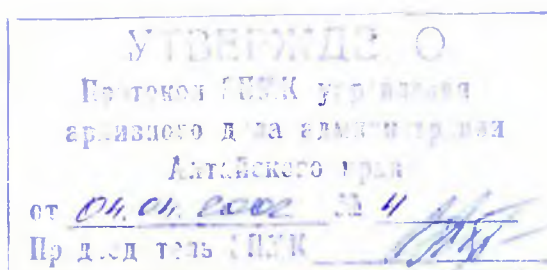 УТВЕРЖДЕНО
Протокол ЭПМК управления
архивного дела администрации
Алтайского края
от 04.04.2002 № 4
Председатель ЭПМК